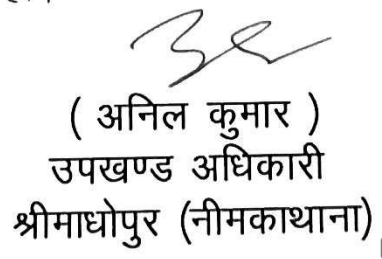 ( अनिल कुमार )
उपखण्ड अधिकारी
श्रीमाधोपुर (नीमकाथाना)